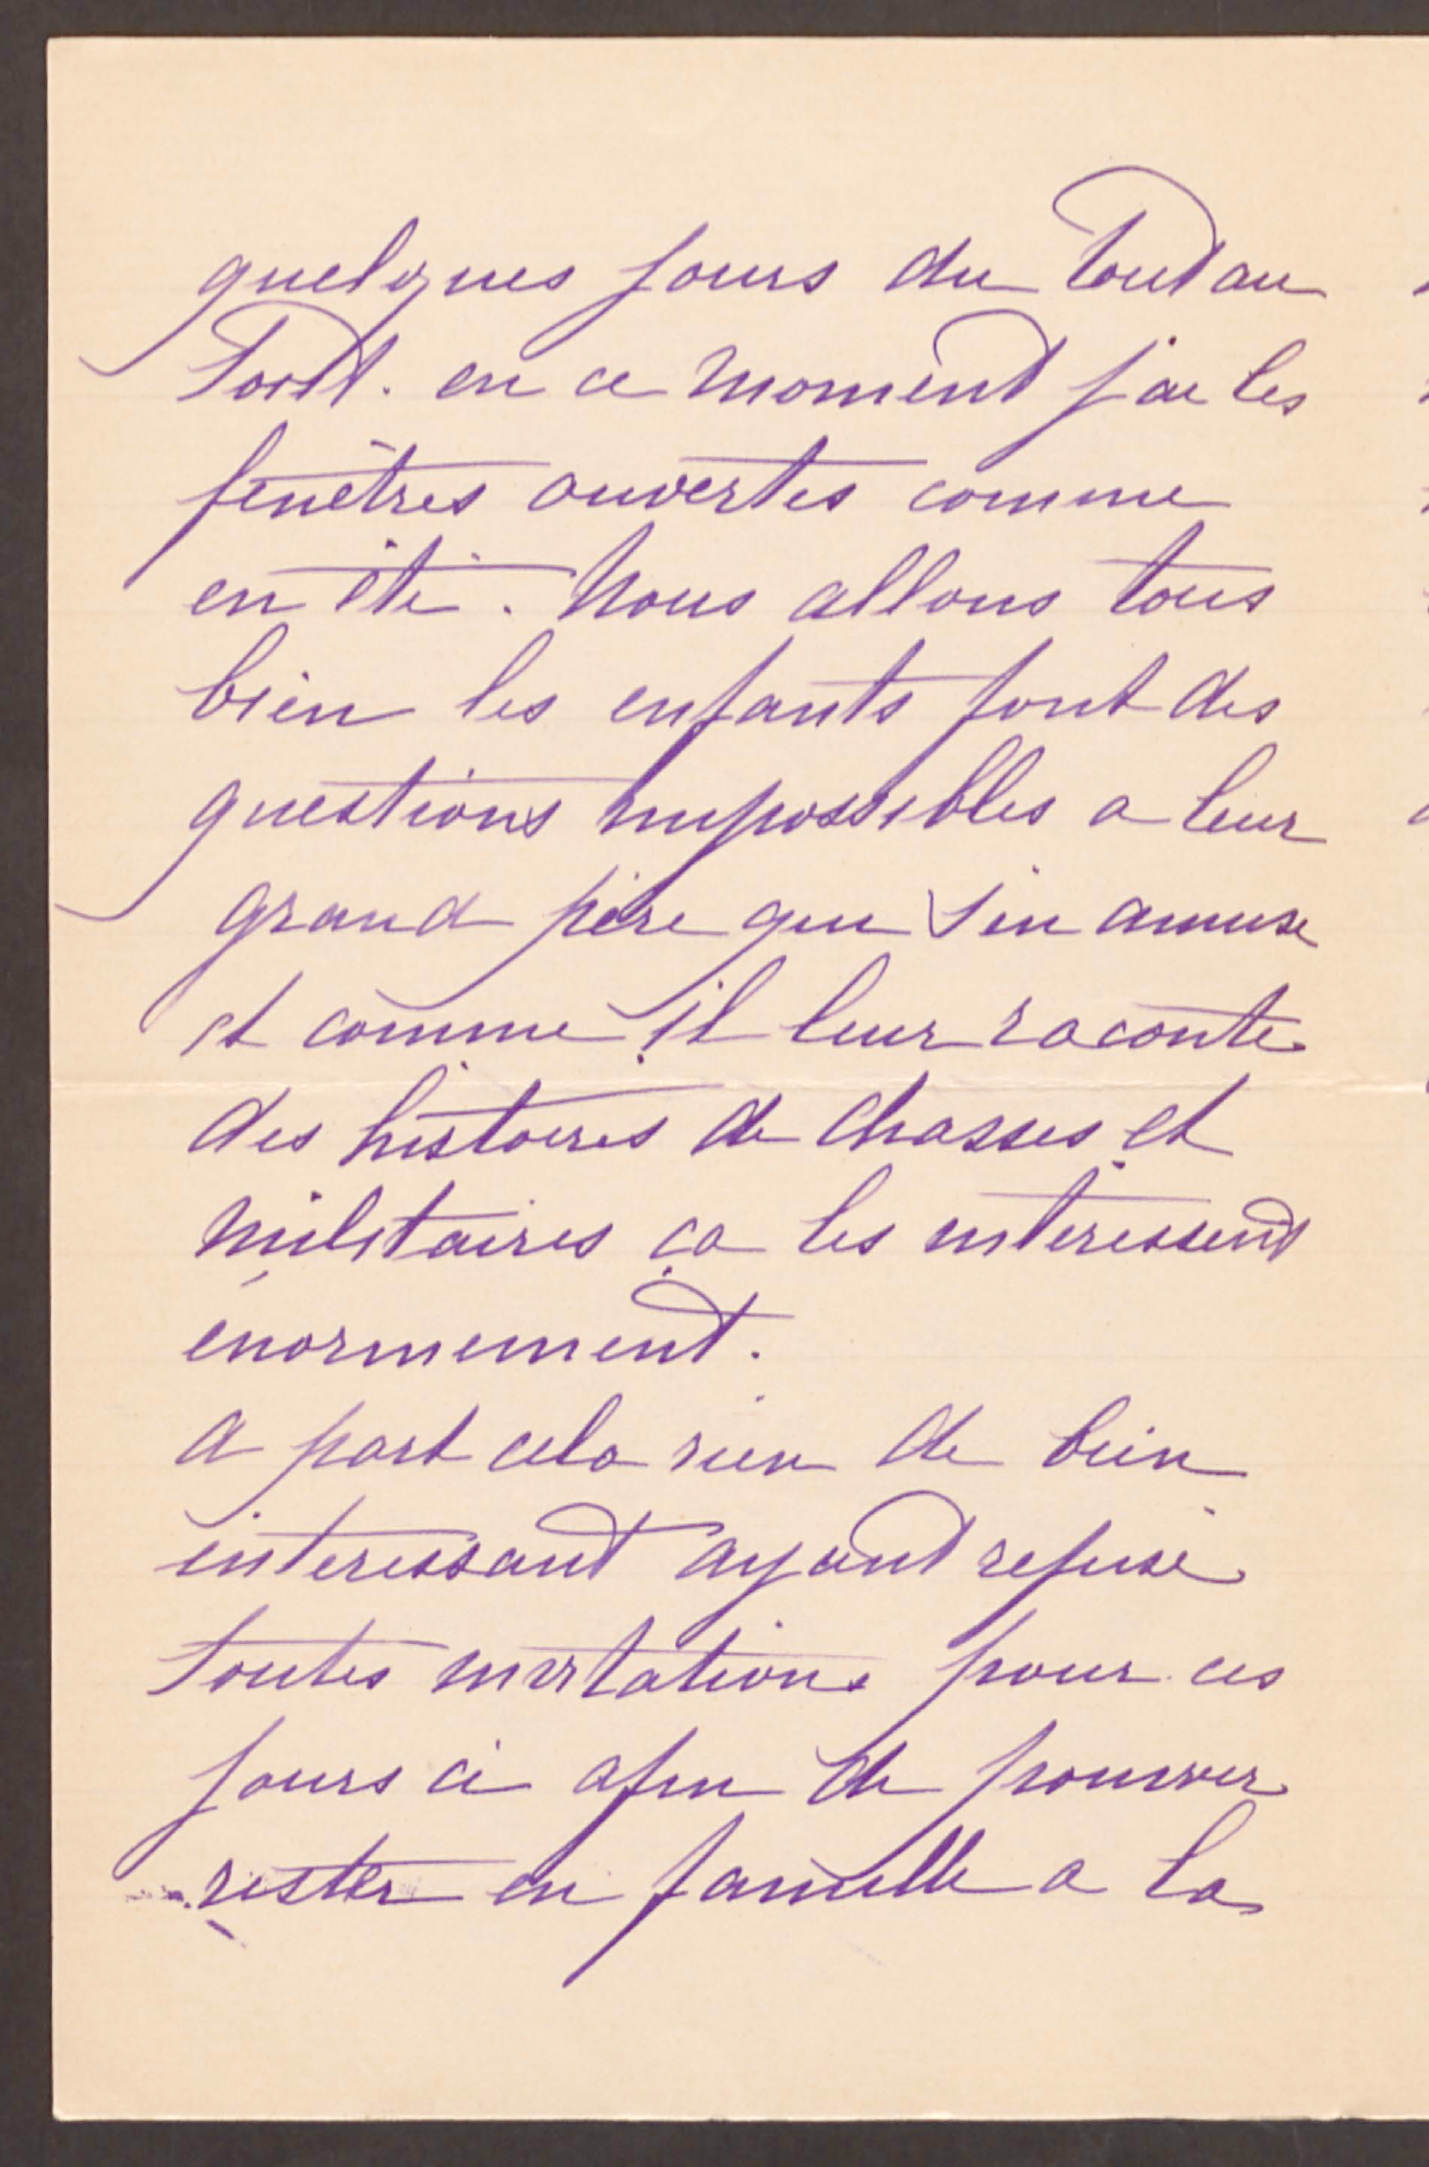 quelques jours du tout au
tout. en ce moment j'ai les
fenêtres ouvertes comme
en été. Nous allons tous
bien les enfants font des
questions impossibles a leur
grand père qui s'en amuse
et comme il leur raconte
des histoires de chasses et
militaires ça les interessent
énormement.
a part cela rien de bien
interessant ayant refusé
toutes invitations pour ces
jours ci afin de pouvoir
rester en famille a la